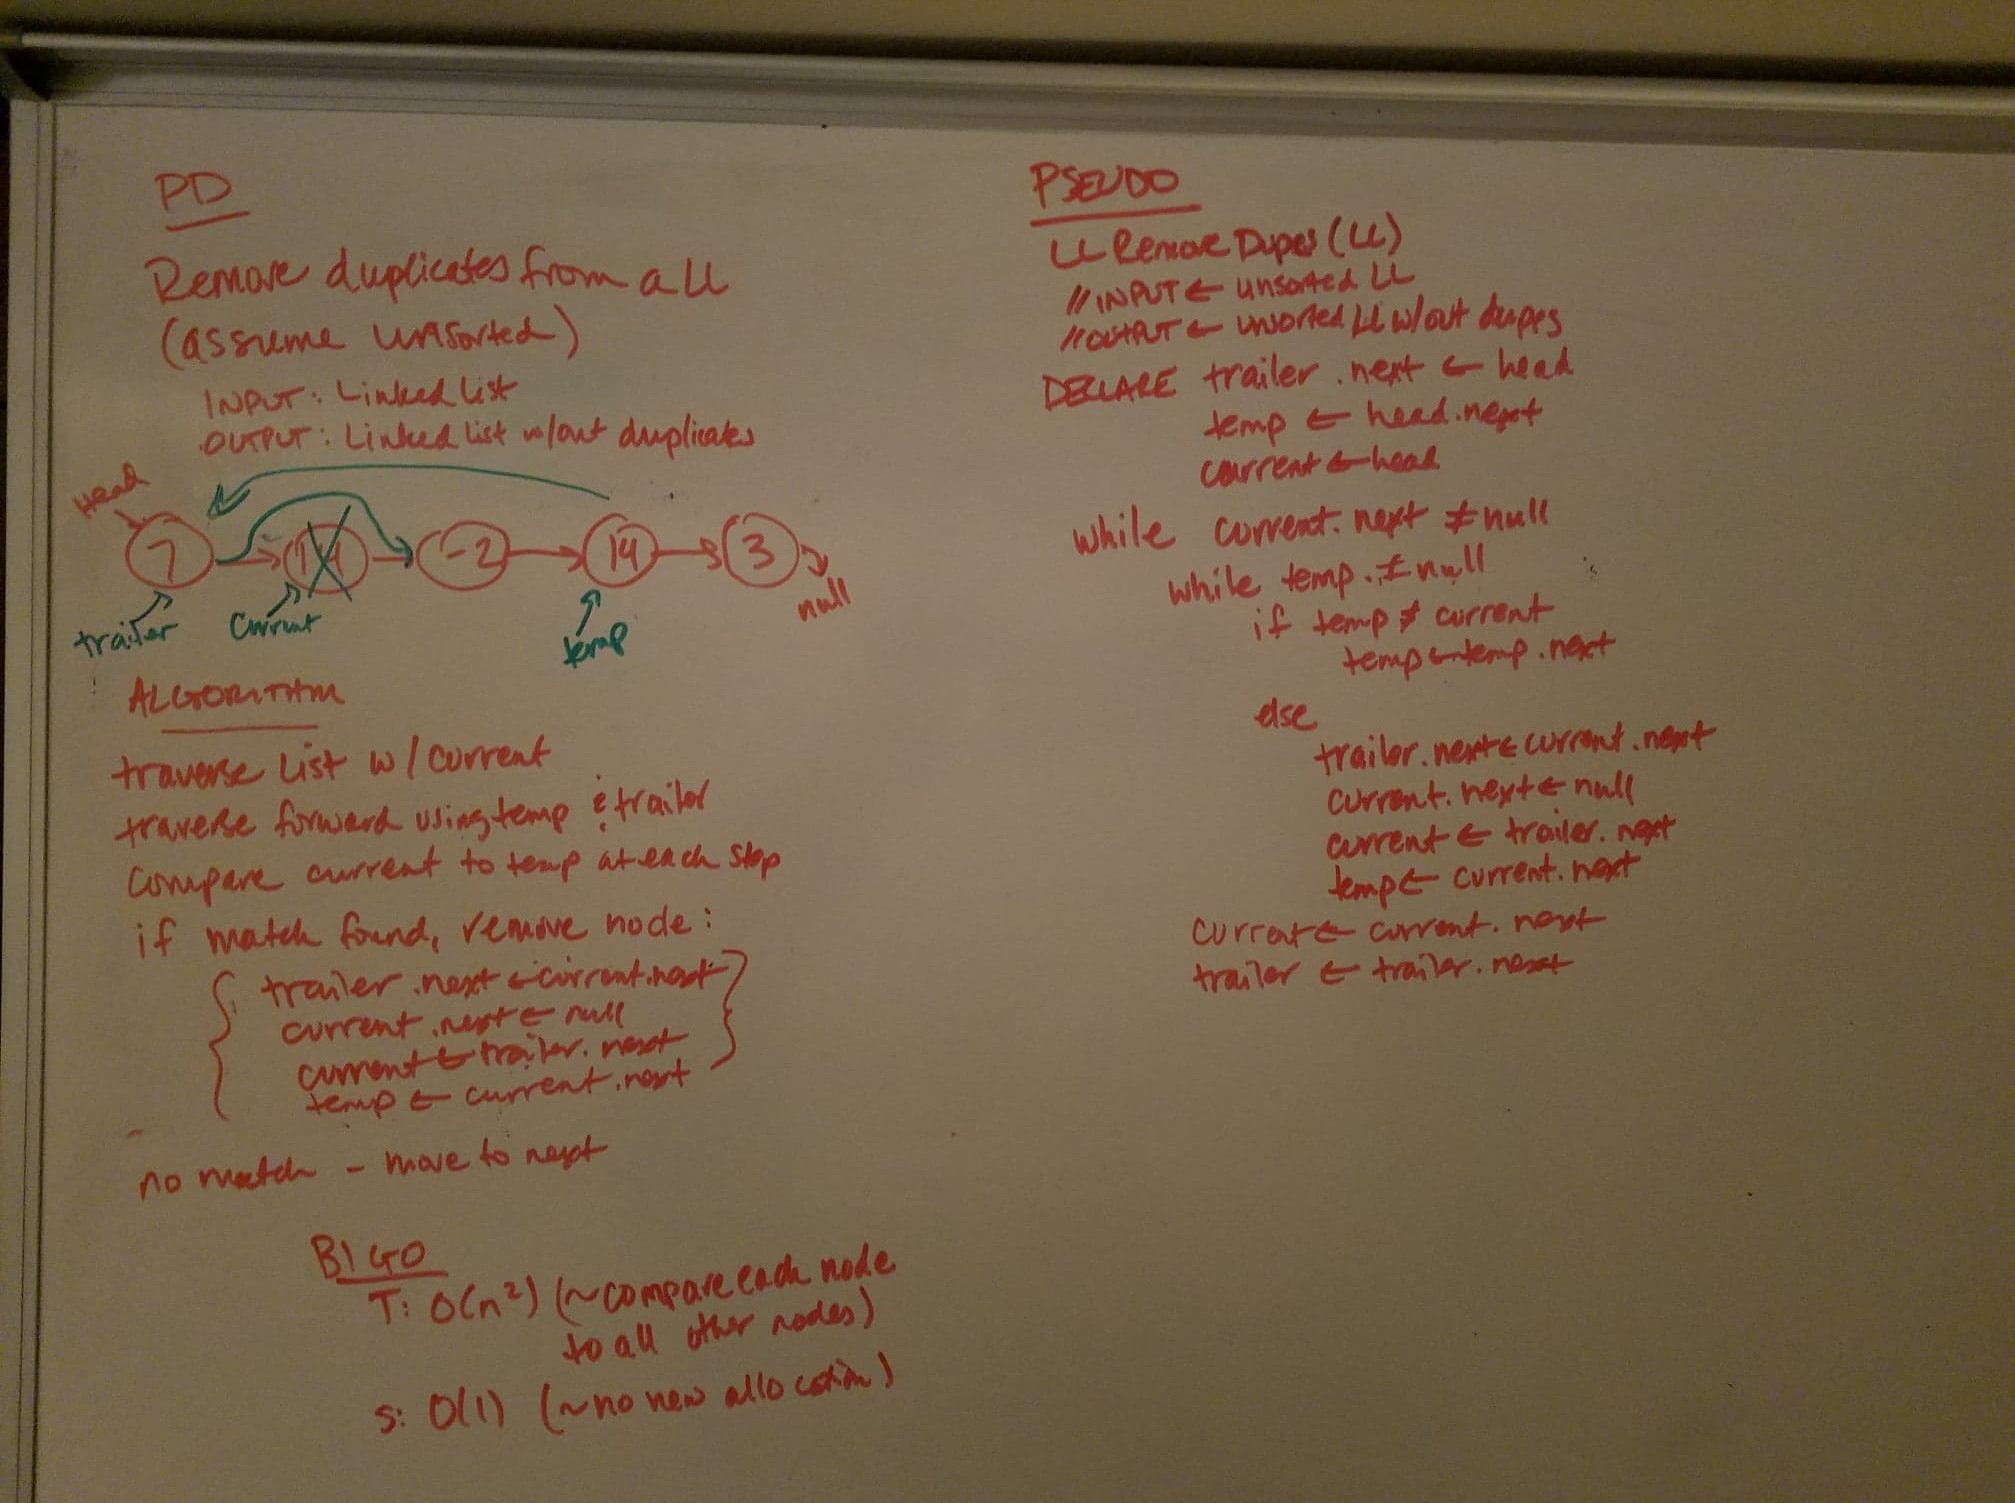 PD
Remove duplicates from a LL
(assume unsorted)
INPUT: Linked list
OUTPUT: Linked list w/out duplicates
Head
7 -2 14 3
null
trailer current temp
ALGORITHM
traverse list w/ current
traverse forward using temp & trailer
compare current to temp at each step
if match found, remove node:
{ trailer.next ← current.next }
current.next ← null
current ← trailer.next
temp ← current.next
no match - move to next
BIG O
T: O(n²) (~compare each node
to all other nodes)
S: O(1) (~no new allocation)
PSEUDO
LL Remove Dupes (LL)
// INPUT ← unsorted LL
// OUTPUT ← unsorted LL w/out dupes
DECLARE trailer.next ← head
temp ← head.next
current ← head
while current.next ≠ null
while temp. ≠ null
if temp ≠ current
temp ← temp.next
else
trailer.next ← current.next
current.next ← null
current ← trailer.next
temp ← current.next
current ← current.next
trailer ← trailer.next